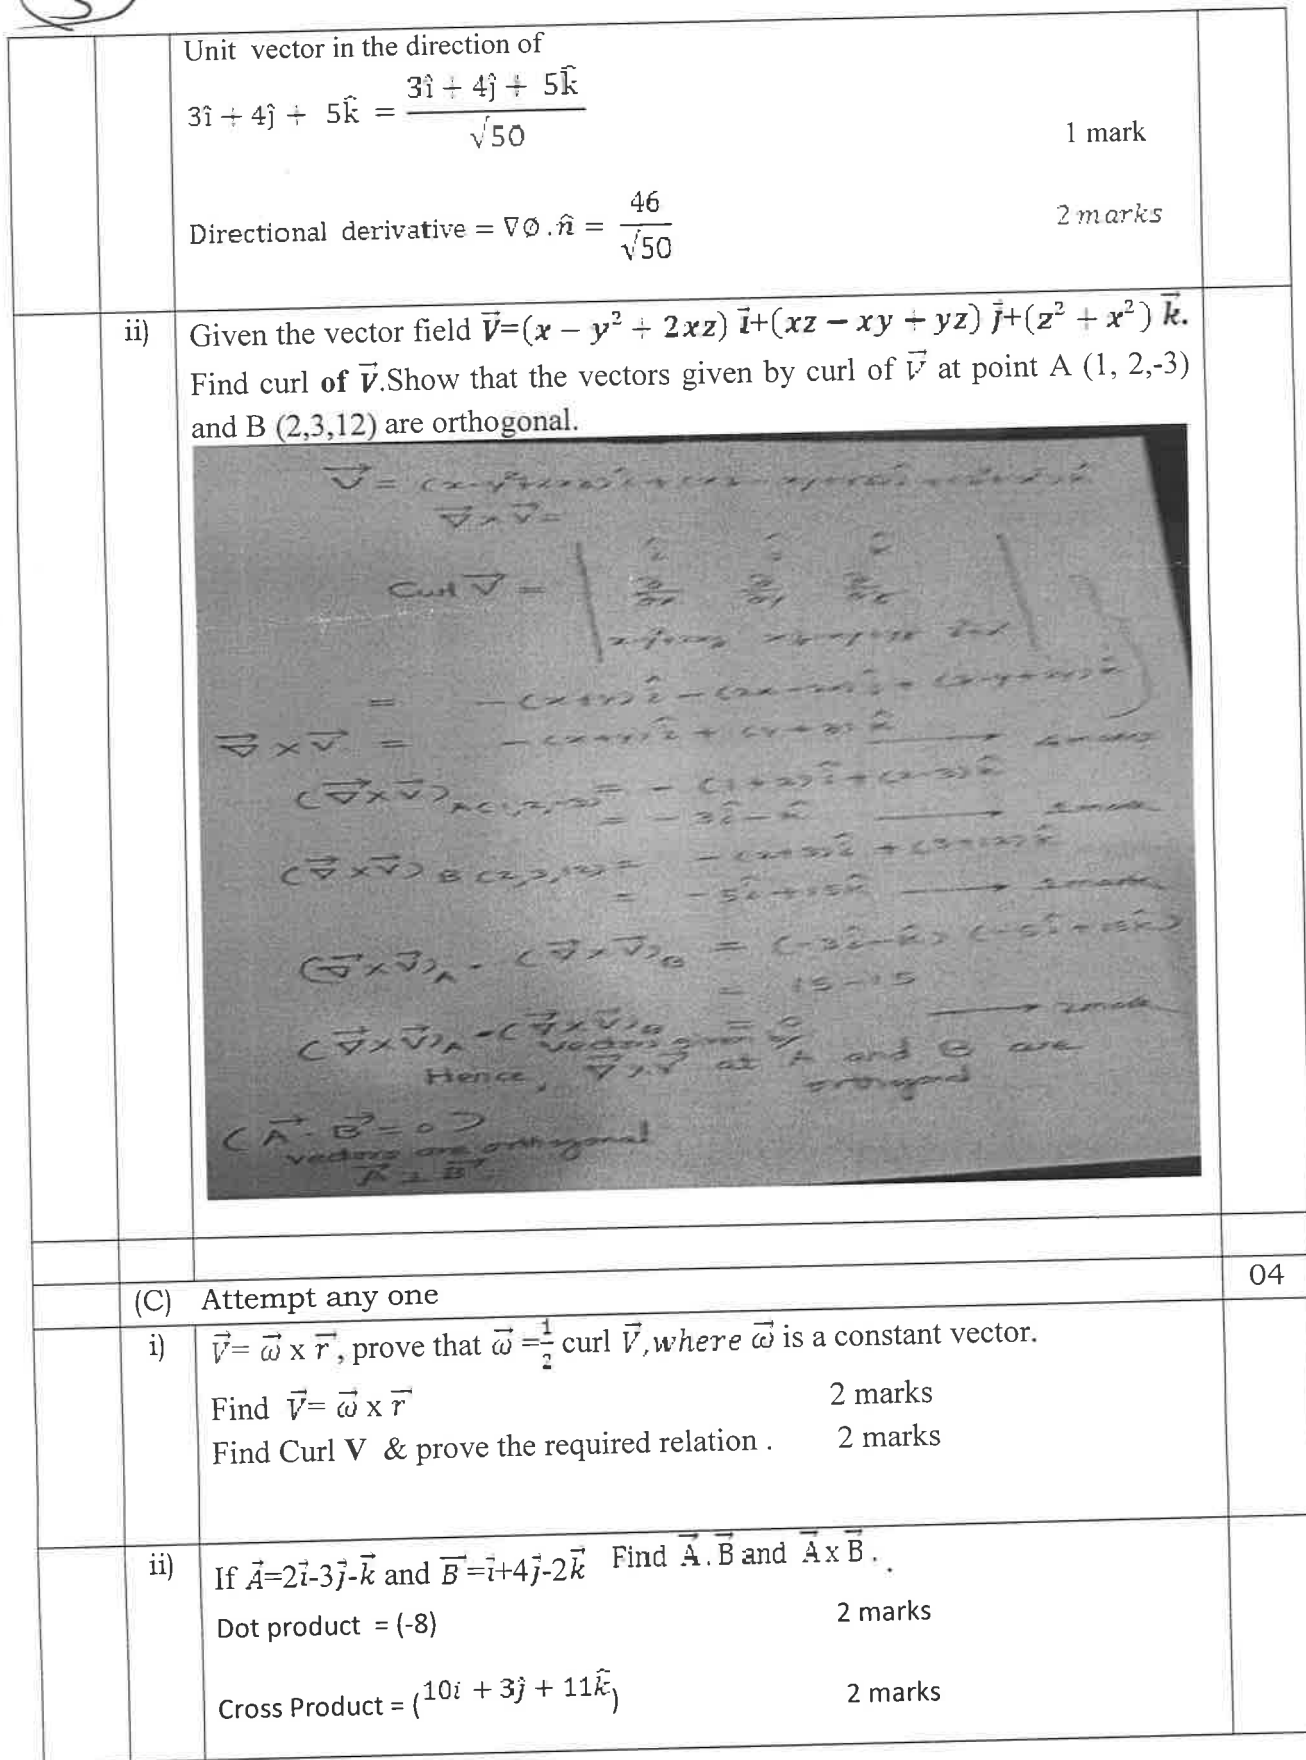 Unit vector in the direction of
3î + 4ĵ + 5k̂ = (3î + 4ĵ + 5k̂)/√50
1 mark
Directional derivative = ∇∅.n̂ = 46/√50
2 marks
ii) Given the vector field V⃗=(x − y² + 2xz) i⃗+(xz − xy + yz) j⃗+(z² + x²) k⃗.
Find curl of V⃗.Show that the vectors given by curl of V⃗ at point A (1, 2,-3)
and B (2,3,12) are orthogonal.
V⃗ =
∇⃗ × V⃗ =
Curl V⃗ =
= -(x+y)î - (2x-2x)ĵ +
∇⃗ × V⃗ = -(x+y)î + (y+z)k̂
(∇⃗×V⃗)A(1,2,-3) = -(1+2)î+(2-3)k̂
= -3î-k̂
(∇⃗×V⃗)B(2,3,12) = -(2+3)î+(3+12)k̂
= -5î+15k̂
(∇⃗×V⃗)A · (∇⃗×V⃗)B = (-3î-k̂) (-5î+15k̂)
= 15-15
(∇⃗×V⃗)A · (∇⃗×V⃗)B = 0
vectors given by
Hence, ∇⃗×V⃗ at A and B are
orthogonal
(A⃗ · B⃗ = 0)
vectors are orthogonal
A⃗ ⊥ B⃗
04
(C) Attempt any one
i) V⃗= ω⃗ x r⃗, prove that ω⃗ =½ curl V⃗,where ω⃗ is a constant vector.
Find V⃗= ω⃗ x r⃗ 2 marks
Find Curl V & prove the required relation . 2 marks
ii) If A⃗=2i⃗-3j⃗-k⃗ and B⃗=i⃗+4j⃗-2k⃗ Find A⃗.B⃗ and A⃗xB⃗ .
Dot product = (-8) 2 marks
Cross Product = (10i + 3ĵ + 11k̂) 2 marks